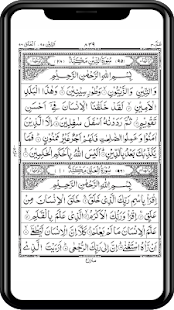 ٨٣٩
سُوْرَةُ التِّيْنِ مَكِّيَّةٌ
بِسْمِ اللّٰهِ الرَّحْمٰنِ الرَّحِيْمِ
وَالتِّيْنِ وَالزَّيْتُوْنِ ۝ وَطُوْرِ سِيْنِيْنَ ۝ وَهٰذَا الْبَلَدِ
الْاَمِيْنِ ۝ لَقَدْ خَلَقْنَا الْاِنْسَانَ فِيْۤ اَحْسَنِ
تَقْوِيْمٍ ۝ ثُمَّ رَدَدْنٰهُ اَسْفَلَ سٰفِلِيْنَ ۝ اِلَّا الَّذِيْنَ
اٰمَنُوْا وَعَمِلُوا الصّٰلِحٰتِ فَلَهُمْ اَجْرٌ غَيْرُ مَمْنُوْنٍ ۝ فَمَا
يُكَذِّبُكَ بَعْدُ بِالدِّيْنِ ۝ اَلَيْسَ اللّٰهُ بِاَحْكَمِ الْحٰكِمِيْنَ ۝
سُوْرَةُ الْعَلَقِ مَكِّيَّةٌ
بِسْمِ اللّٰهِ الرَّحْمٰنِ الرَّحِيْمِ
اِقْرَاْ بِاسْمِ رَبِّكَ الَّذِيْ خَلَقَ ۝ خَلَقَ الْاِنْسَانَ مِنْ
عَلَقٍ ۝ اِقْرَاْ وَرَبُّكَ الْاَكْرَمُ ۝ الَّذِيْ عَلَّمَ بِالْقَلَمِ ۝
عَلَّمَ الْاِنْسَانَ مَا لَمْ يَعْلَمْ ۝ كَلَّاۤ اِنَّ الْاِنْسَانَ لَيَطْغٰۤى ۝
اَنْ رَّاٰهُ اسْتَغْنٰى ۝ اِنَّ اِلٰى رَبِّكَ الرُّجْعٰى ۝ اَرَءَيْتَ الَّذِيْ